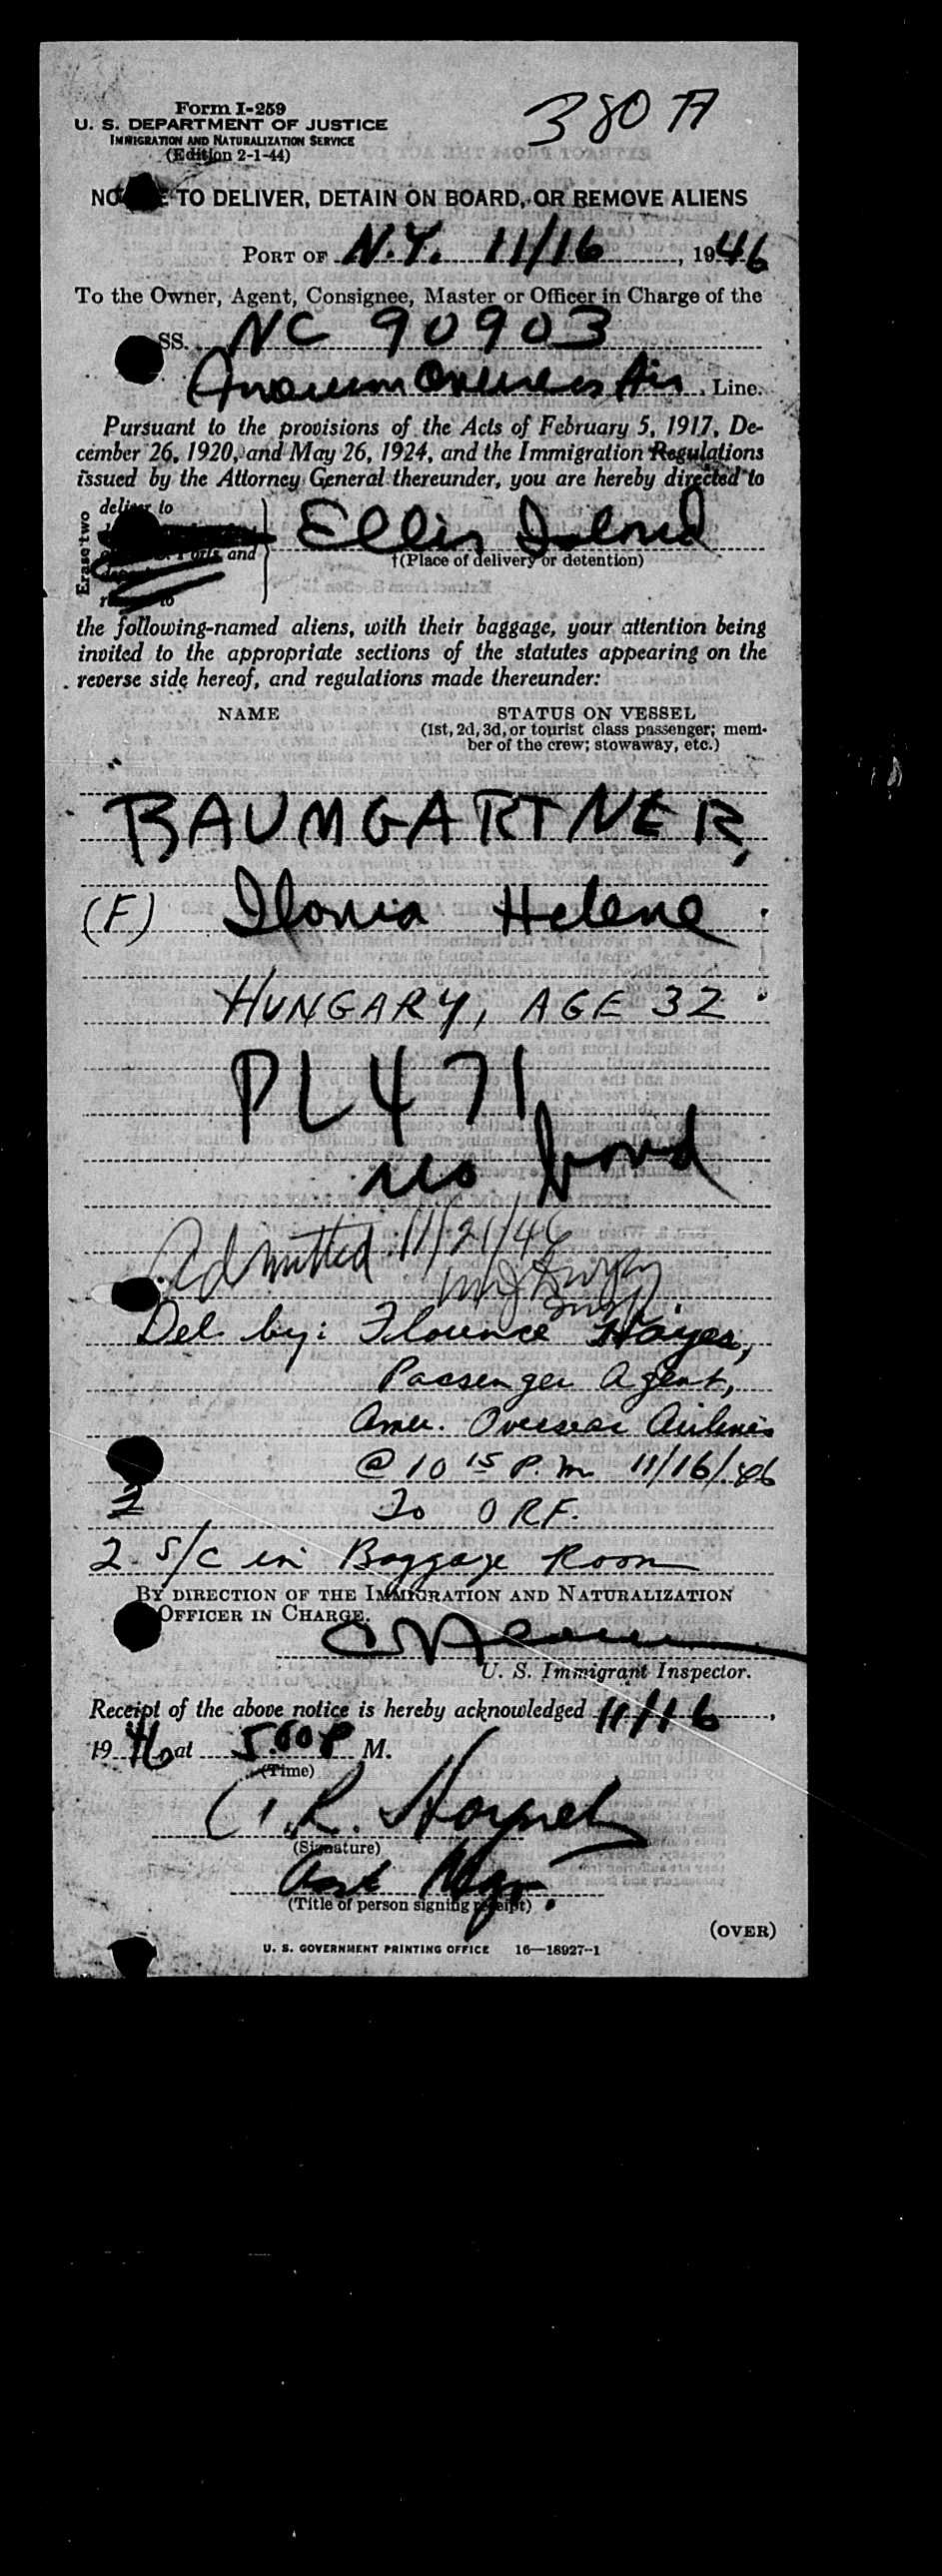 380 A
Form I-259
U. S. DEPARTMENT OF JUSTICE
IMMIGRATION AND NATURALIZATION SERVICE
(Edition 2-1-44)
TO DELIVER, DETAIN ON BOARD, OR REMOVE ALIENS
PORT OF N.Y. 11/16, 1946
To the Owner, Agent, Consignee, Master or Officer in Charge of the
SS. NC 90903
Overseas Air Line.
Pursuant to the provisions of the Acts of February 5, 1917, De-
cember 26, 1920, and May 26, 1924, and the Immigration Regulations
issued by the Attorney General thereunder, you are hereby directed to
Erase two
deliver to
Ports and
Ellis Island
†(Place of delivery or detention)
the following-named aliens, with their baggage, your attention being
invited to the appropriate sections of the statutes appearing on the
reverse side hereof, and regulations made thereunder:
NAME STATUS ON VESSEL
(1st, 2d, 3d, or tourist class passenger; mem-
ber of the crew; stowaway, etc.)
BAUMGARTNER,
(F) Ilona Helene
HUNGARY, AGE 32
PL 471
no bond
Admitted 11/21/46
Del by: Florence Hayes,
Passenger Agent,
Amer. Overseas Airlines
@ 10 15 P.M 11/16/46
2 To O R.F.
2 S/C in Baggage Room
BY DIRECTION OF THE IMMIGRATION AND NATURALIZATION
OFFICER IN CHARGE.
U. S. Immigrant Inspector.
Receipt of the above notice is hereby acknowledged 11/16,
1946 at 5:00 P M.
(Time)
C. R.
(Signature)
Mgr.
(Title of person signing receipt)
(OVER)
U. S. GOVERNMENT PRINTING OFFICE 16—18927-1